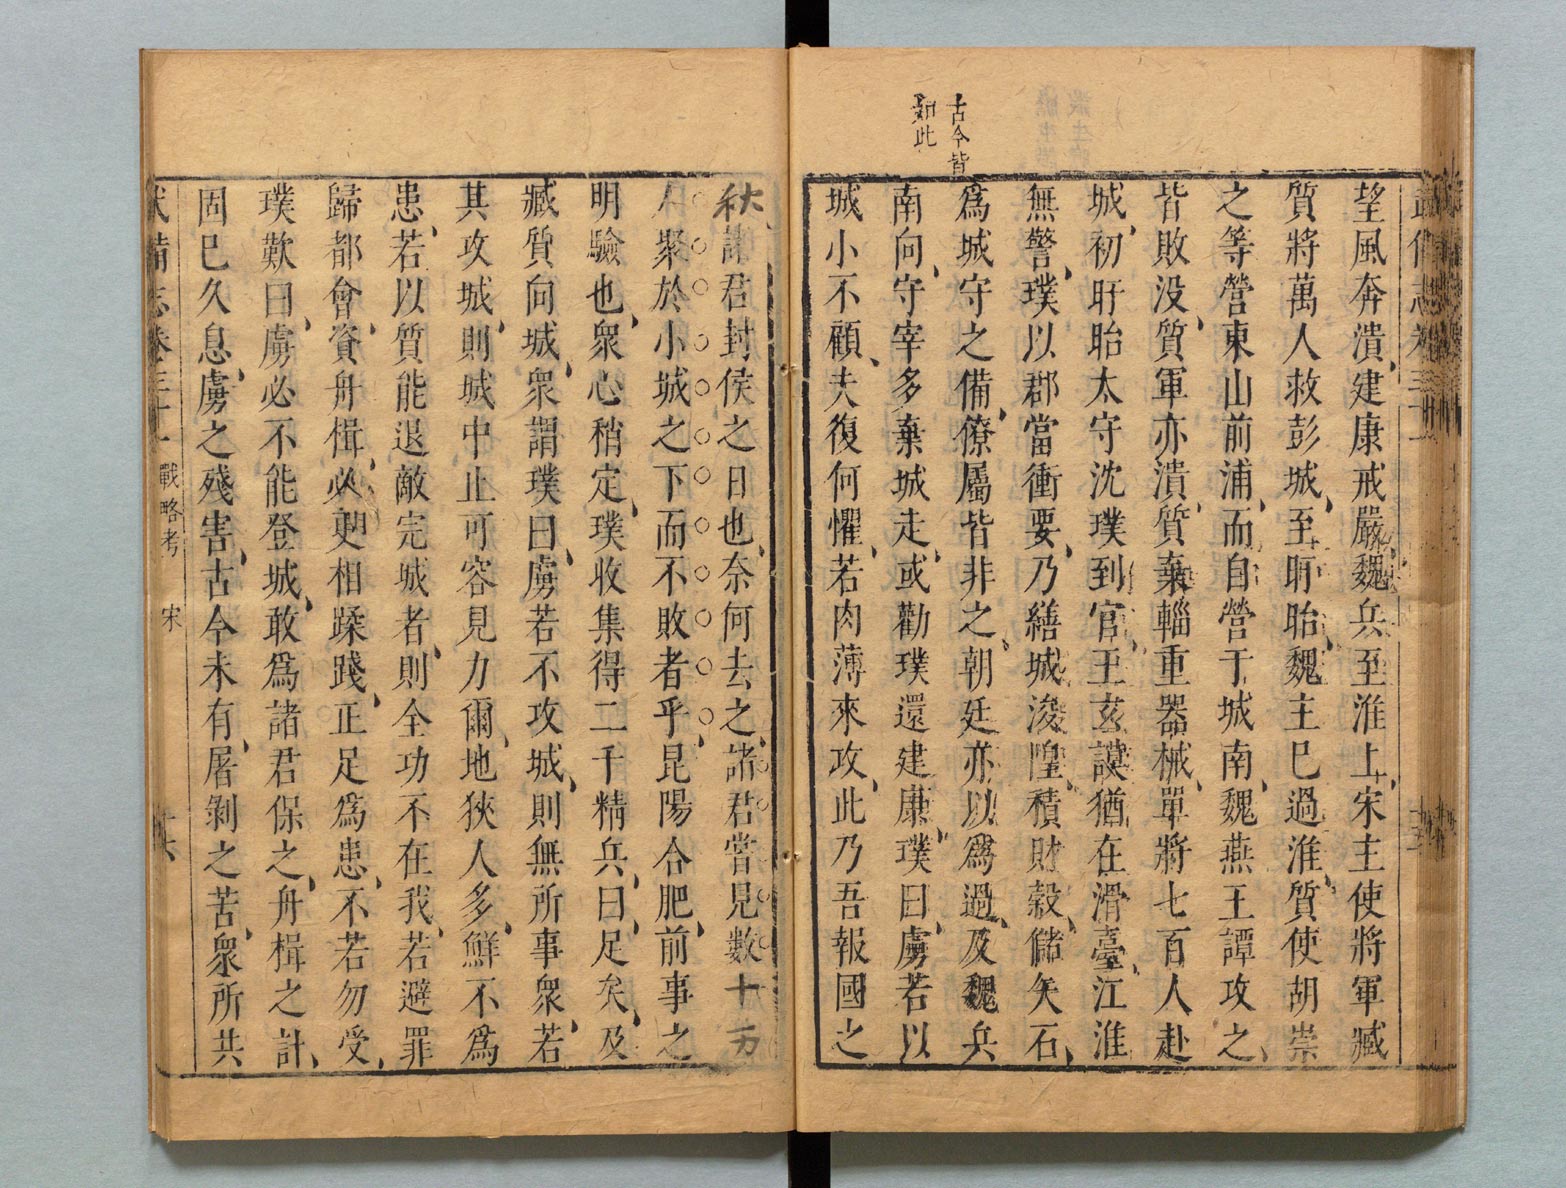 古今皆
如此
武備志卷三十一
望風奔潰建康戒嚴魏兵至淮上宋主使將軍臧
質將萬人救彭城至盱眙魏主巳過淮質使胡崇
之等營東山前浦而自營于城南魏燕王譚攻之
皆敗没質軍亦潰質棄輜重器械單將七百人赴
城初盱眙太守沈璞到官王玄謨猶在滑臺江淮
無警璞以郡當衝要乃繕城浚隍積財穀儲矢石
爲城守之備僚屬皆非之朝廷亦以爲過及魏兵
南向守宰多棄城走或勸璞還建康璞曰虜若以
城小不顧夫復何懼若肉薄來攻此乃吾報國之
秋諸君封侯之日也奈何去之諸君嘗見數十万
人聚於小城之下而不敗者乎昆陽合肥前事之
明驗也衆心稍定璞收集得二千精兵曰足矣及
臧質向城衆謂璞曰虜若不攻城則無所事衆若
其攻城則城中止可容見力爾地狹人多鮮不爲
患若以質能退敵完城者則全功不在我若避罪
歸都會資舟楫必更相蹂踐正足爲患不若勿受
璞歎曰虜必不能登城敢爲諸君保之舟楫之計
固巳久息虜之殘害古今未有屠剝之苦衆所共
武備志卷三十一 戰略考 宋 十六